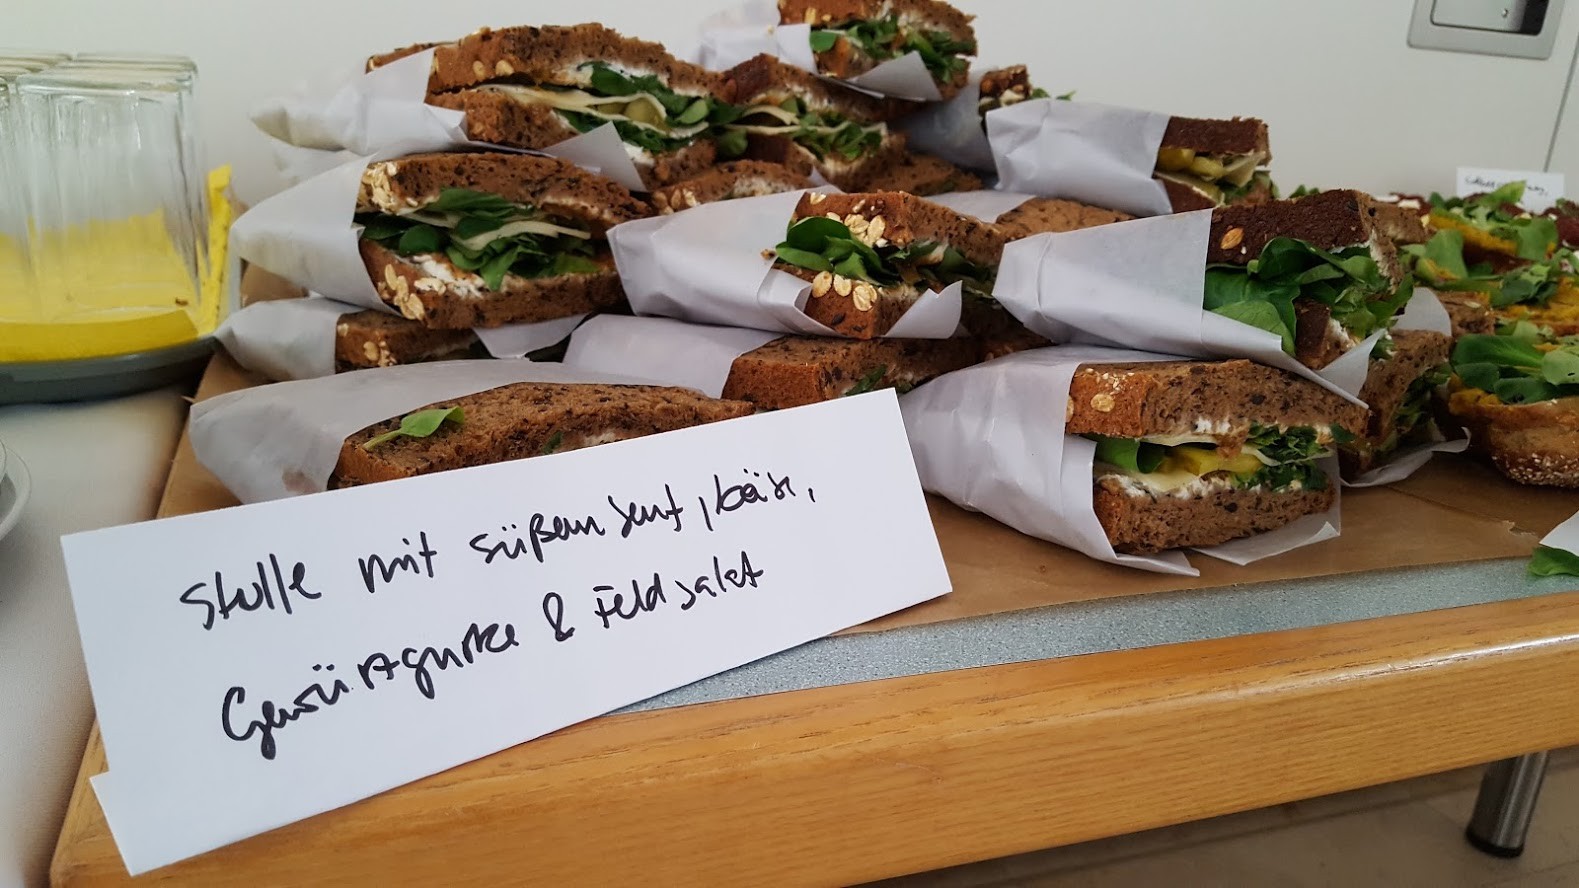 Stulle mit süßem Senf, Käse,
Gewürzgurke & Feldsalat